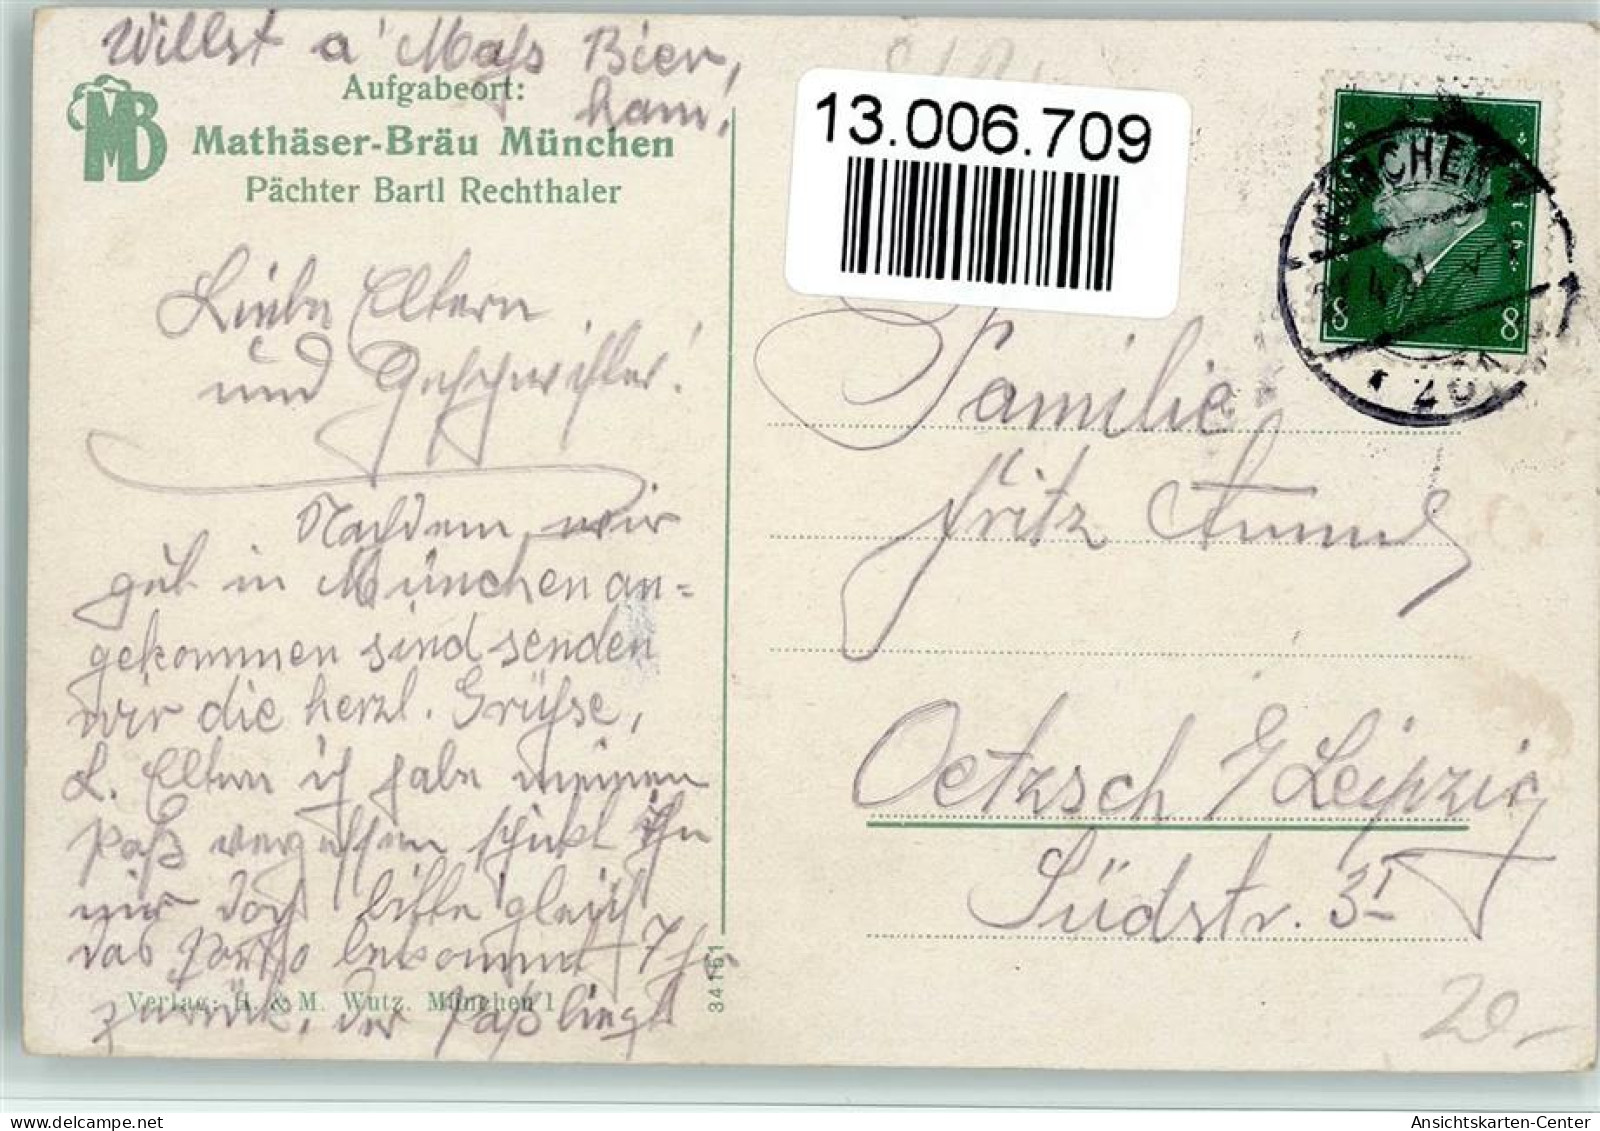 Willst a' Maß Bier,
ham!
MB
Aufgabeort:
Mathäser-Bräu München
Pächter Bartl Rechthaler
Liebe Eltern
und Geschwister!
Nachdem wir
gut in München an=
gekommen sind senden
wir die herzl. Grüße,
L. Eltern ich habe meinen
Paß vergessen schickt ihn
mir doch bitte gleich
das Porto bekommt Ihr
zurück, der Paß liegt
Verlag: H. & M. Wutz, München 1
34161
13.006.709
MÜNCHEN
8 8
Familie
Fritz
Oetzsch b/Leipzig
Südstr. 3 I
20,-
Ansichtskarten-Center